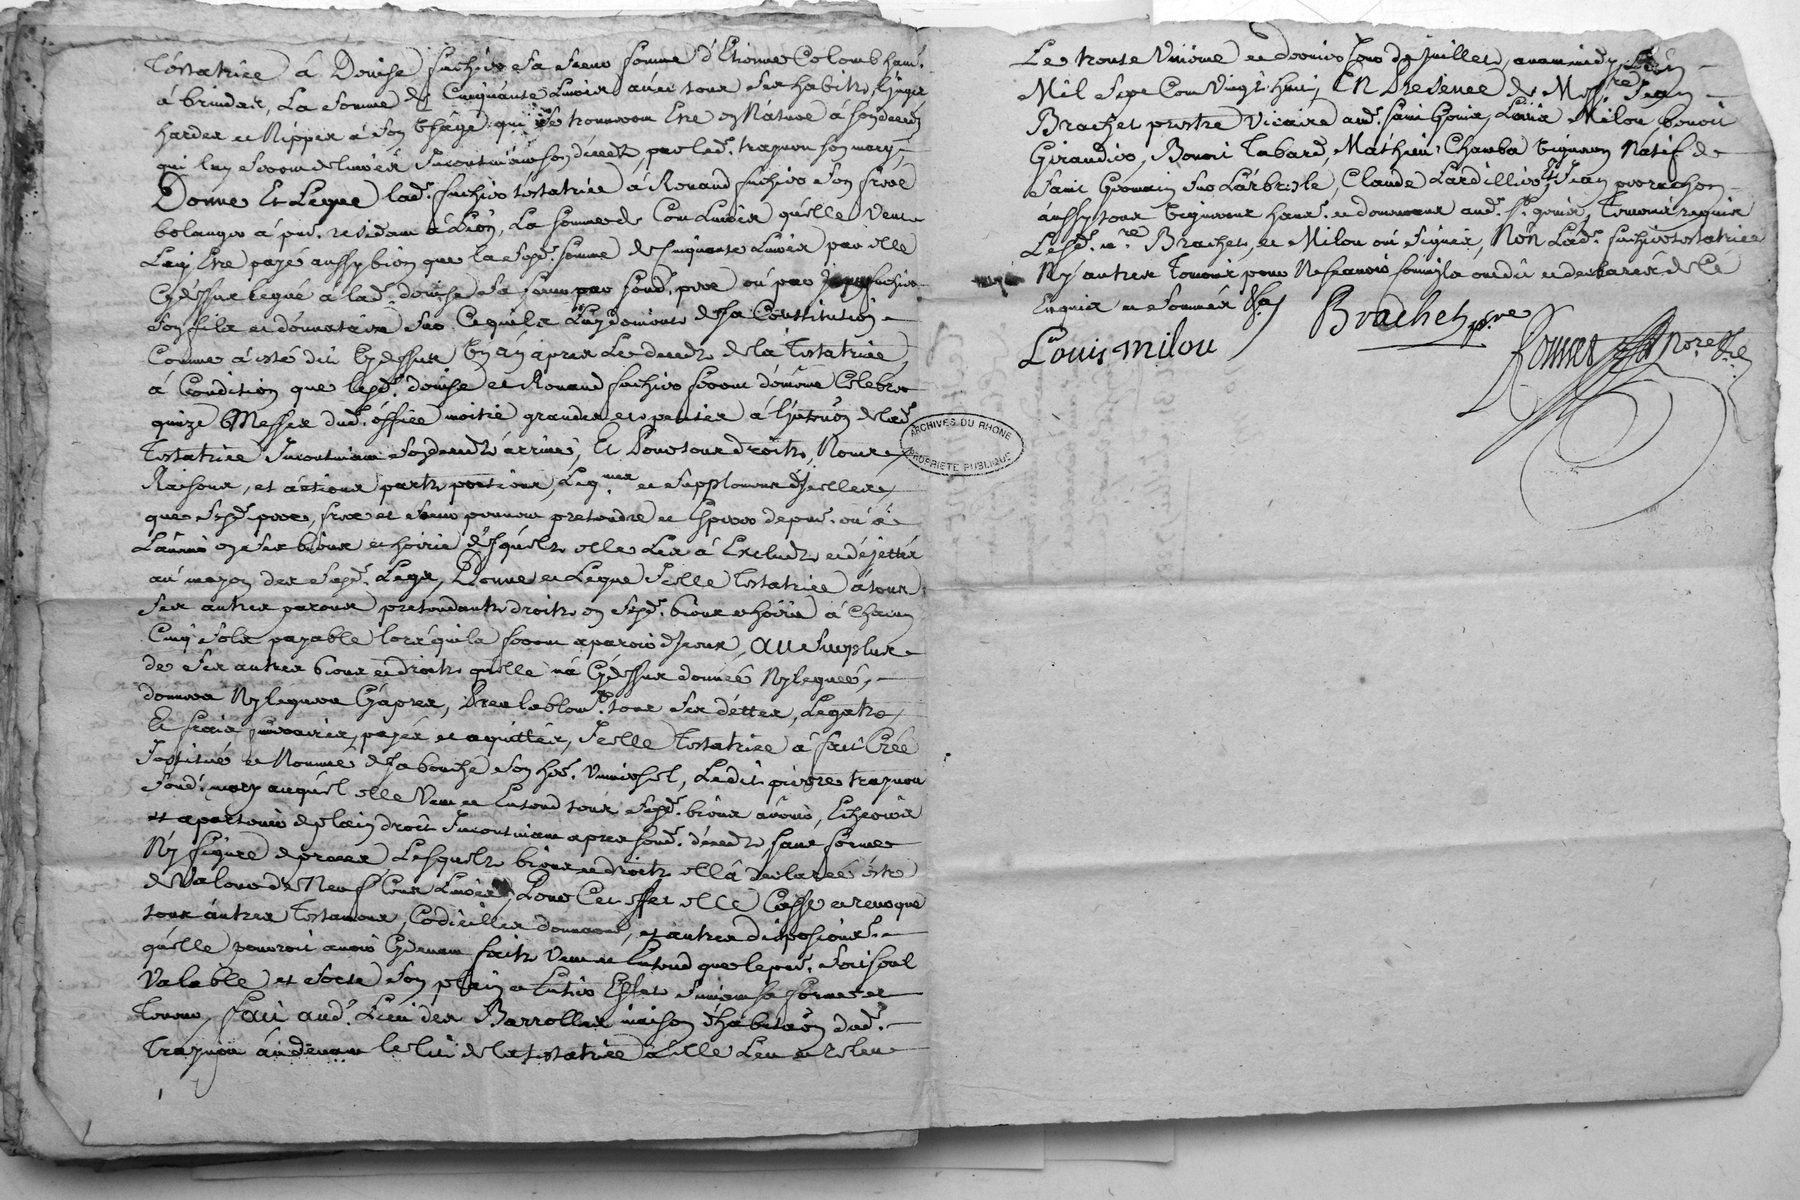 Testatrice a Denise fuchiro sa seur femme d'Etienne Colomb habt.
a brindas, La somme de Cinquante Livres avec tous ses habits, linges
hardes et Nippes a son usage qui se trouveront Etre en Nature a son deceds
qui luy seront delivrés Incontinant son deceds, par led. traynon son mary,
Donne Et Legue lad. fuchiro testatrice a Renaud fuchiro son frere
bolanger a pnt. residant a Lion, La somme de Cent Livres qu'elle veut
Luy Etre payé aussy bien que la susd. somme de Cinquante Livres par elle
Cydessus legué a lad. denise sa seur par sond. pere ou par fuchiro
son fils et donnataire sur Ce qu'ils Luy doivent de sa Constitution
Comme a esté dit Cydessus Un an apres Le deceds de la Testatrice
a Condition que lesd. denise et Renaud fuchiro feront de même Celebrer
quinze Messes dud. office moitié grandes et petites a l'intention de lad.
Testatrice Incontinant son deceds arrivé, Et Pour tous droits, Noms
Raisons, et actions parts portions, Leg. mes et supplement d'Icelles
que susd. pere, frere et seur peuvent pretendre et Esperer de pnt. ou a
L'avenir en ses biens et hoirie desquels elle Les a Exclud et dejettés
au moyen des susd. Legs, Donne et Legue Icelle Testatrice a tous
ses autres parens pretendants droits en susd. biens et hoirie a Chacun
Cinq sols payable lors qu'ils feront aparoir d'Iceux, AU surplus
de ses autres biens et droits qu'elle n'a Cydessus donnée Ny legués,
donnera Ny leguera Cyapres, Prealablemt. tous ses dettes, Legats
Et frais funeraires, payés et aquittés, Icelle Testatrice a fait Créé
Institué et Nommé de sa bouche son her. Universel, Ledit pierre traynon
sond. mary auquel elle Veut et Entend tous susd. biens avenir, Echeoir
et apartenir de plain droit Incontinant apres sond. deceds sans forme
Ny figure de proces Lesquels biens et droits ell'a declarée être
de Valeur de Neuf Cens Livres, Pour Cet effet elle Casse et revoque
tous autres Testamens, Codicilles donnations, et autres dispositions
qu'elle pourroit avoir Cydevant faits Veut et Entend que le pnt. soit seul
Valable et sorte son plain et Entier Effet suivant sa forme et
Teneur, fait aud. Lieu des Barrolles maison d'habitaon dud.
Traynon audevant le lit de la testatrice a elle Leu et releu
Le trente Unième et dernier Jour de Juillet, avant midy, L'an
Mil Sept Cent Vingt huit, EN Presence de Messre Jean
Brachet prestre Vicaire aud. saint Genis, Louis Milou, benoit
Girandier, Benoit Tabard, Mathieu Chamba vigneron Natif de
saint Germain sur L'arbresle, Claude Lardillier, et Jean
aussy tous vignerons habts. et demeurant aud. st. genis, Temoins requis
Lesd. sre. Brachet, et Milou ont signés, Non Lad. fuchiro testatrice
Ny autres Temoins pour Ne sçavoir comm'ils ont dit et declarés de Ce
Enquis et sommés
Brachet pre
Louis milou
nore
ARCHIVES DU RHONE
PROPRIETE PUBLIQUE